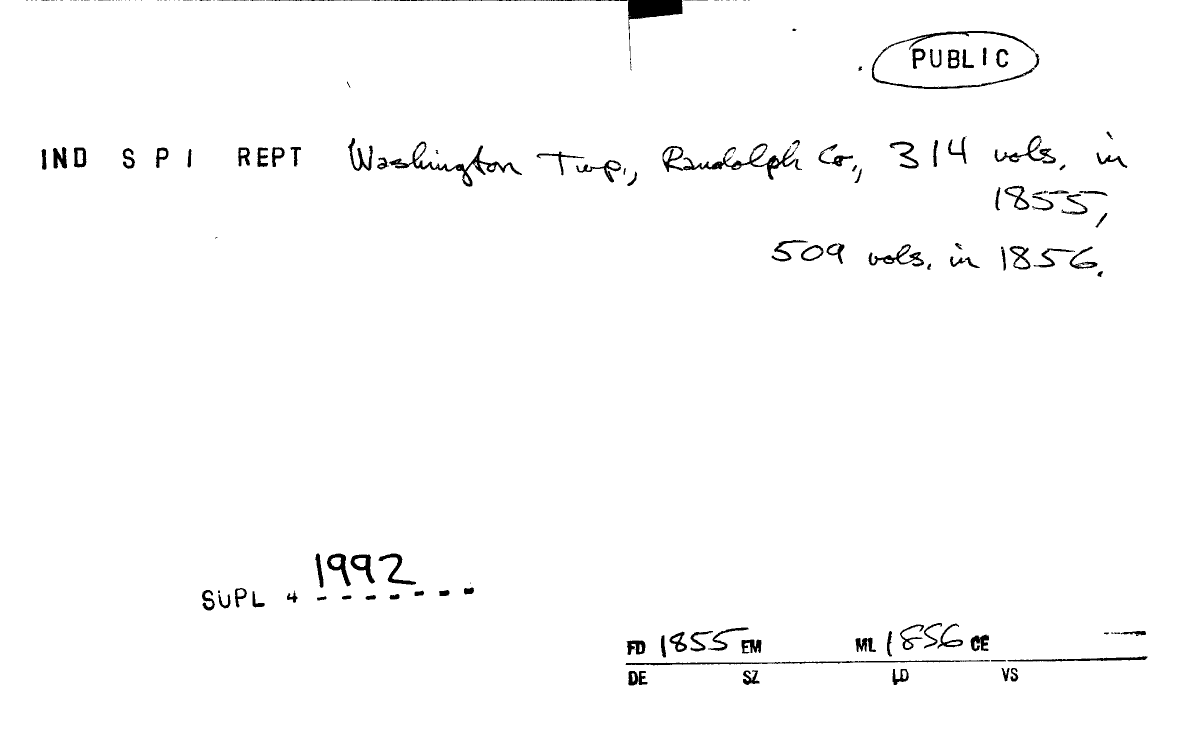 PUBLIC
IND S P I REPT Washington Twp., Randolph Co., 314 vols. in
1855,
509 vols. in 1856.
SUPL 4 1992
FD 1855 EM ML 1856 CE
DE SZ LD VS